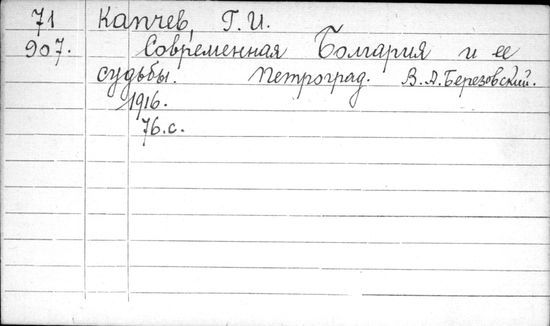 71 Капчев, Г. И.
907. Современная Болгария и ее
судьбы. Петроград. В.А.Березовский.
1916.
76.с.